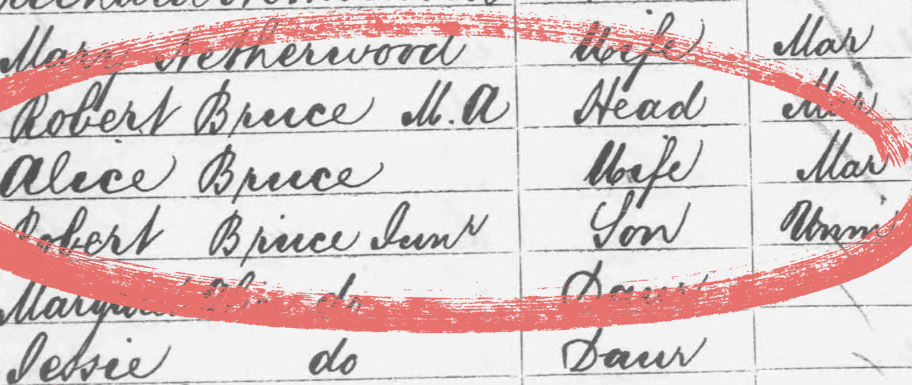 Mary Netherwood Wife Mar
Robert Bruce M.A Head Mar
Alice Bruce Wife Mar
Robert Bruce Junr Son Unm
Margaret do Daur
Jessie do Daur